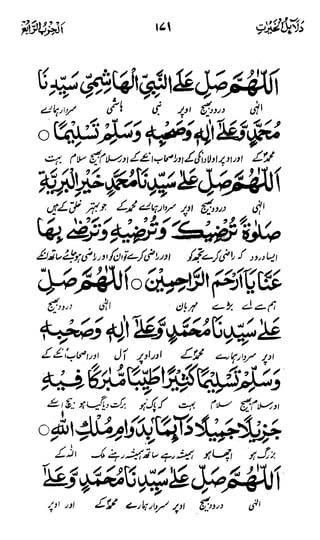 دلائل الخیرات ١٧٩ الحزب الرابع
اَللّٰهُمَّ صَلِّ عَلَى النَّبِيِّ الْهَاشِمِيِّ سَيِّدِنَا
الٰہی درود بھیج اوپر نبی ہاشمی سردار ہمارے
مُحَمَّدٍ وَّعَلٰٓى اٰلِهٖ وَصَحْبِهٖ وَسَلِّمْ تَسْلِيْمًا ○
محمدؐ کے اور اوپر اولاد انکی کے اور اصحاب انکے کے اور سلام بھیج سلام بہت
اَللّٰهُمَّ صَلِّ عَلٰى سَيِّدِنَا مُحَمَّدٍ خَيْرِ الْبَرِيَّةِ
الٰہی درود بھیج اوپر سردار ہمارے محمدؐ کے جو بہتر خلق کے ہیں
صَلٰوةً تُرْضِيْكَ وَتُرْضِيْهِ وَتَرْضٰى بِهَا
ایسا درود کہ راضی کرے تجھ کو اور راضی کرے تو ان کو اور راضی ہو جائے ساتھ انکے
عَنَّا يَا اَرْحَمَ الرَّاحِمِيْنَ ○ اَللّٰهُمَّ صَلِّ
ہم سے اے بڑے مہربان الٰہی درود بھیج
عَلٰى سَيِّدِنَا مُحَمَّدٍ وَّعَلٰٓى اٰلِهٖ وَصَحْبِهٖ
اوپر سردار ہمارے محمدؐ کے اور اوپر آل اور اصحاب انکے کے
وَسَلِّمْ تَسْلِيْمًا كَثِيْرًا طَيِّبًا مُّبَارَكًا فِيْهِ
اور سلام بھیج سلام بہت کہ پاک ہو برکت دیا گیا ہو بیچ اسکے
جَزِيْلًا جَمِيْلًا دَآئِمًا بِدَوَامِ مُلْكِ اللّٰهِ ○
بزرگ ہو اچھا ہو ہمیشہ رہے ساتھ ہمیشہ رہنے ملک اللہ کے
اَللّٰهُمَّ صَلِّ عَلٰى سَيِّدِنَا مُحَمَّدٍ وَّعَلٰٓى
الٰہی درود بھیج اوپر سردار ہمارے محمدؐ کے اور اوپر